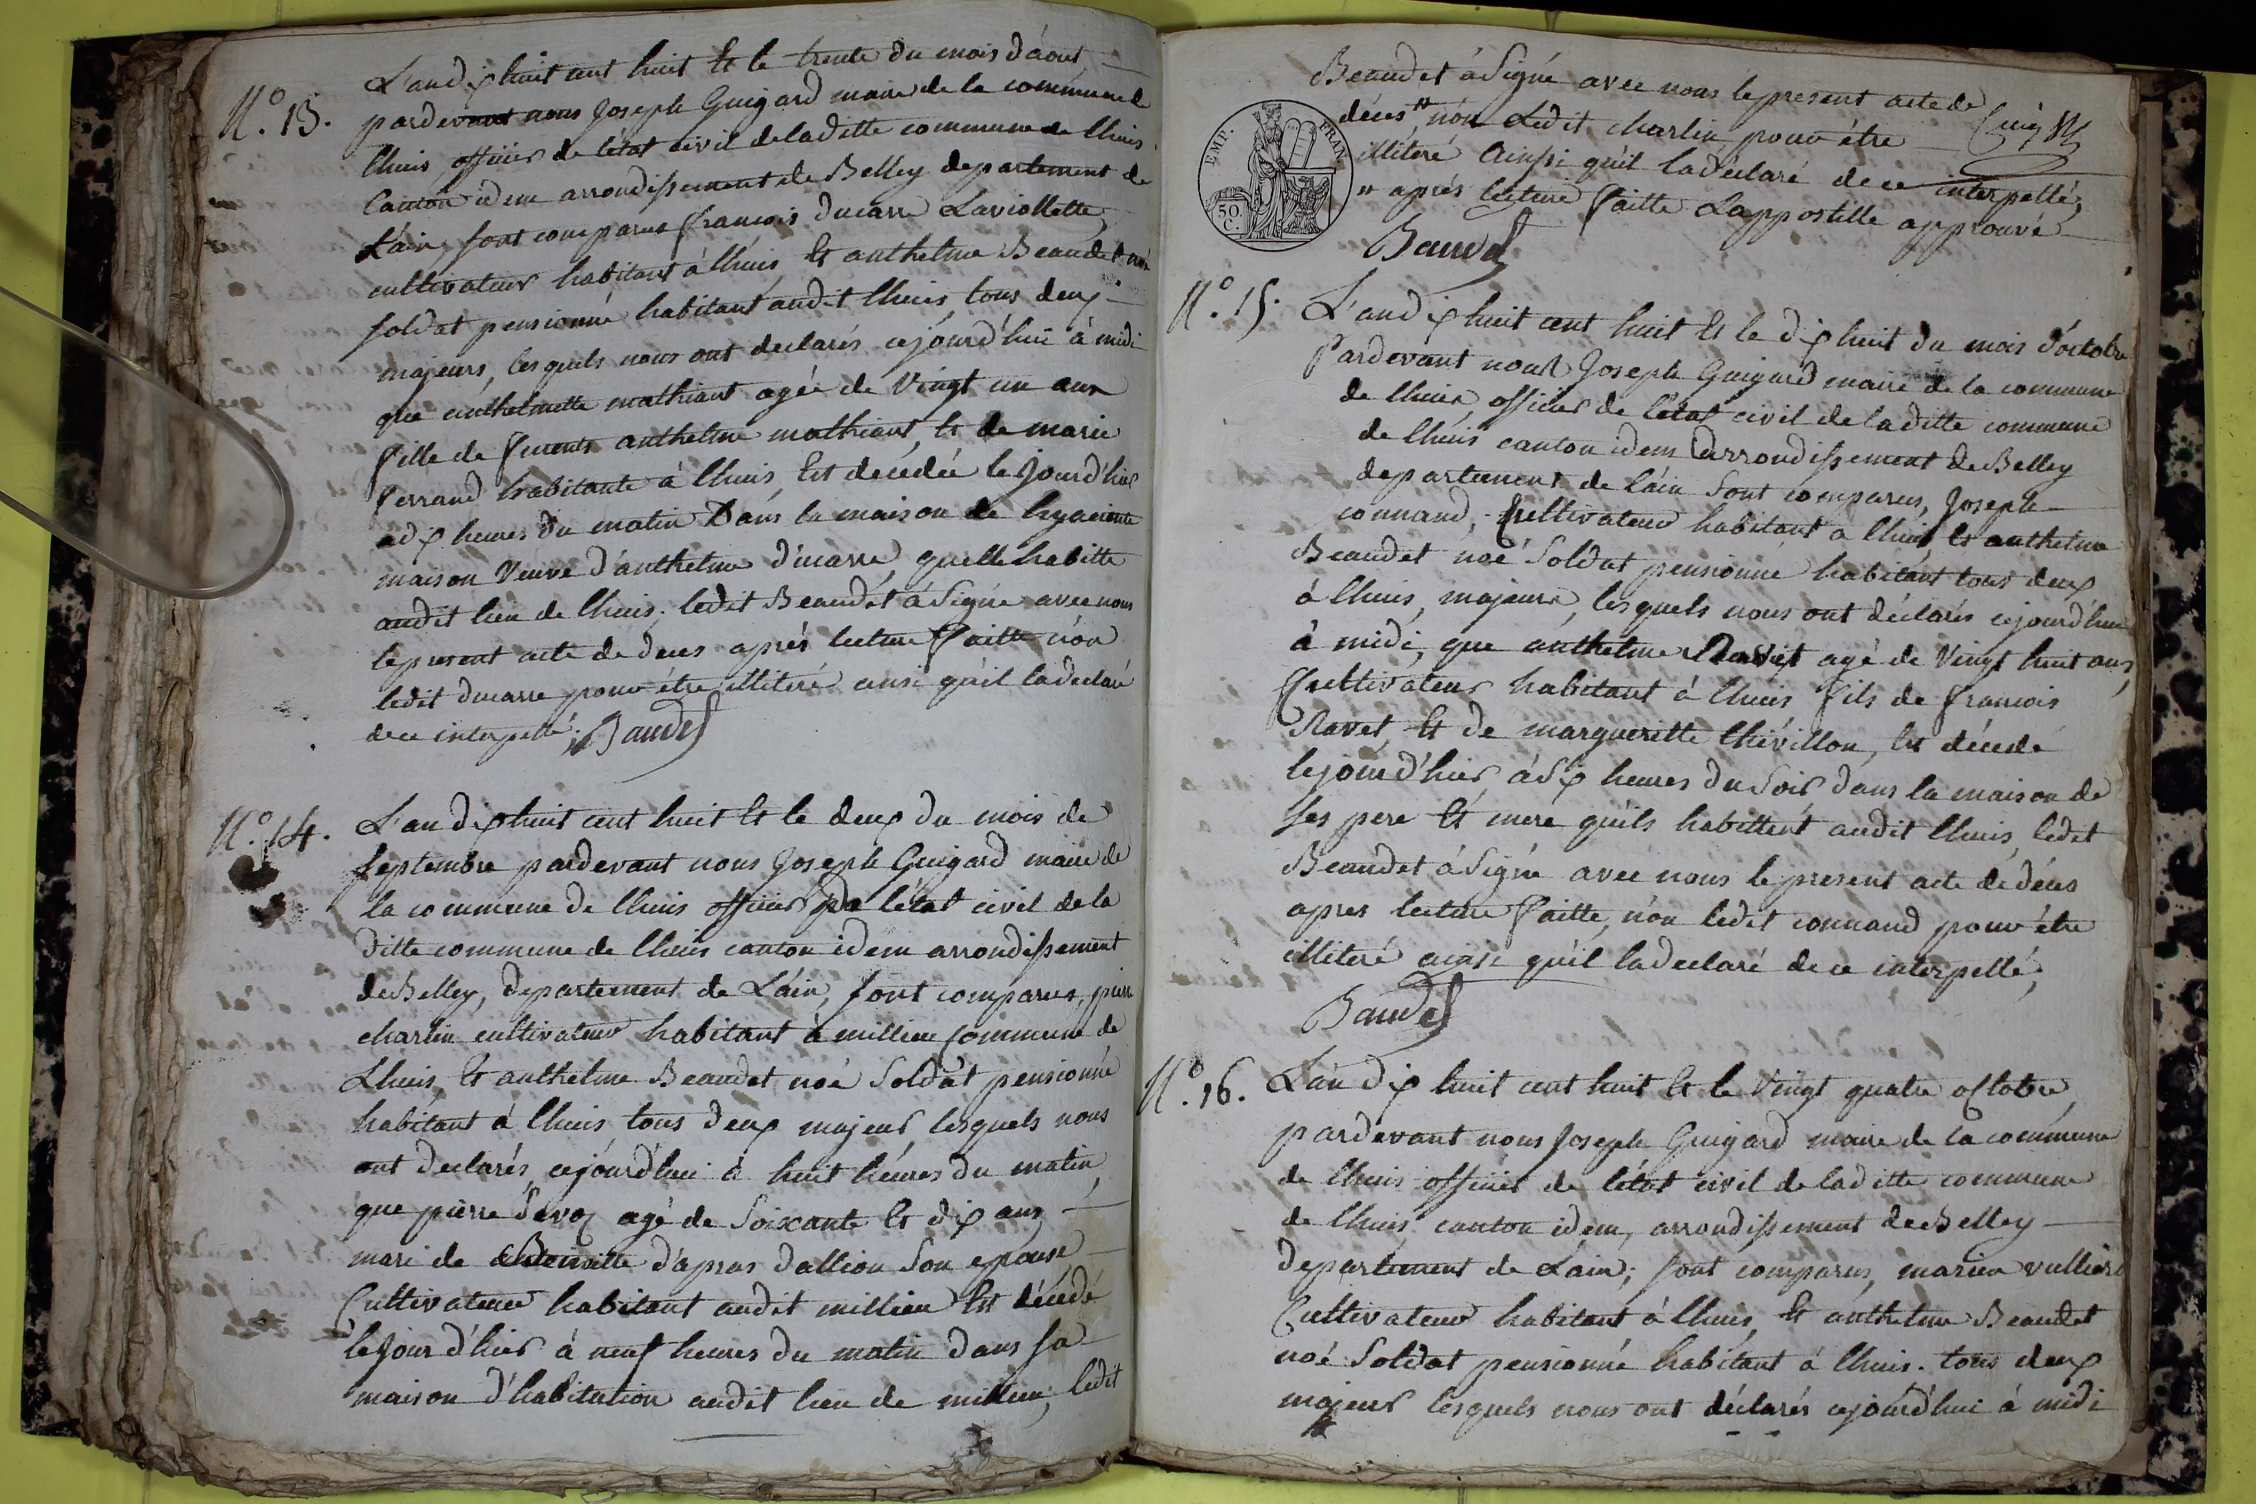 N.º 13.
L'an dix huit cent huit Et le trente du mois d'aout
pardevant nous Joseph Guigard maire de la commune de
lhuis officier de l'état civil de laditte commune de lhuis
Canton idem arrondissement de Belley departement de
L'ain, sont comparus francois ducarre Laviollette
cultivateur habitant à lhuis Et anthelme Beaudet noé
soldat pensionné habitant audit lhuis, tous deux
majeurs, lesquels nous ont declarés cejourd'hui à midi
que anthelmette mathiant agée de Vingt un ans
fille de anthelme mathiant, Et de marie
ferrand habitante à lhuis Est decédée le Jourd'hier
a dix heures du matin Dans la maison de hyacinte
maison Veuve d'anthelme ducarre quelle habitte
audit lieu de lhuis. ledit Beaudet à Signé avec nous
le present acte de deces après lecture faitte n'on
ledit ducarre pour étre illiteré ainsi qu'il la declaré
de ce interpellé. Baudet
N.º 14.
L'an dix huit cent huit Et le deux du mois de
septembre pardevant nous Joseph Guigard maire de
la commune de lhuis officier de l'état civil de la
ditte commune de lhuis canton idem arrondissement
de Belley, departement de L'ain, sont comparus, pierre
charlin cultivateur habitant à millieu commune de
Lhuis, Et anthelme Beaudet noé Soldat pensionné
habitant à lhuis tous deux majeur lesquels nous
ont declarés cejourd'hui à huit heures du matin,
que pierre Savoz agé de Soixante Et dix ans
mari de d'apras dallion Son epouse
Cultivateur habitant audit millieu Est décédé
le Jour d'hier à neuf heures du matin dans sa
maison d'habitation audit lieu de millieu, ledit
Beaudet à Signé avec nous le present acte de
déces " n'on Ledit charlin pour étre
illiteré Ainssi qu'il la déclaré de ce interpellé;
" aprés lecture faitte Lappostille approuvé
Baudet
EMP. FRAN.
50. C.
N.º 15.
L'an dix huit cent huit Et le dix huit du mois d'octobre
Pardevant nous Joseph Guigard maire de la commune
de lhuis officier de l'état civil de laditte commune
de lhuis canton idem arrondissement de Belley
departement de l'ain Sont comparus, Joseph
connand, Cultivateur habitant a lhuis Et anthelme
Beaudet noé Soldat pensionné habitant tous deux
à lhuis, majeurs, lesquels nous ont déclarés cejourd'hui
à midi, que anthelme Ravet agé de Vingt huit ans,
Cultivateur habitant à lhuis fils de francois
Ravet, Et de margueritte Chevillon, Est décédé
le jourd'hier, à Six heures du Soir dans la maison de
ses pere Et mere qu'ils habittent audit lhuis, ledit
Beaudet à Signé avec nous le present acte de déces
apres lecture faitte, n'on ledit connand pour étre
illiteré ainsi qu'il la declaré de ce interpellé;
Baudet
N.º 16.
L'an dix huit cent huit Et le Vingt quatre octobre,
pardevant nous Joseph Guigard maire de la commune
de lhuis officier de l'état civil de laditte commune
de lhuis, canton idem, arrondissement de Belley
departement de L'ain; sont comparus, marien vulliere
Cultivateur habitant à lhuis, Et anthelme Beaudet
noé Soldat pensionné habitant à lhuis. tous deux
majeur lesquels nous ont déclarés cejourd'hui à midi